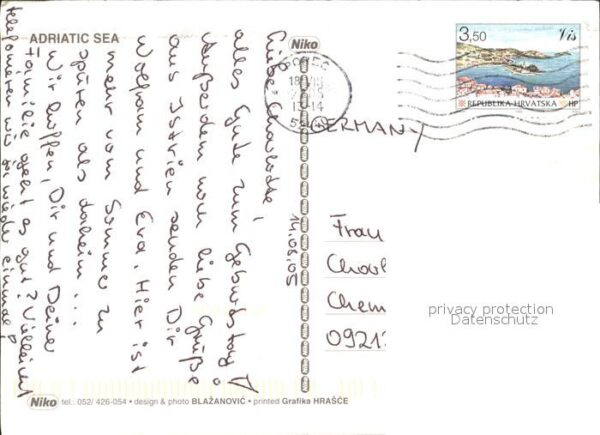 ADRIATIC SEA
Niko
3,50
Vis
REPUBLIKA HRVATSKA HP
18
13-14
GERMANY
14.08.05
Liebe Charlotte,
alles Gute zum Geburtstag!
Außerdem noch liebe Grüße
aus Istrien senden Dir
Wolfram und Eva. Hier ist
mehr vom Sommer zu
spüren als daheim...
Wir hoffen, Dir und Deiner
Familie geht es gut? Vielleicht
telefonieren wir ja wieder einmal?
Frau
Charl
Chem
0921
privacy protection
Datenschutz
Niko tel.: 052/ 426-054 • design & photo BLAŽANOVIĆ • printed Grafika HRAŠĆE